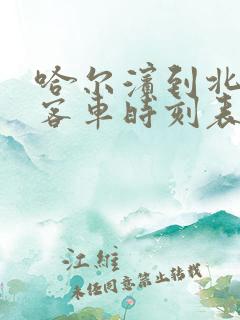 哈尔滨到北
客车时刻表
江维
未经同意禁止转载